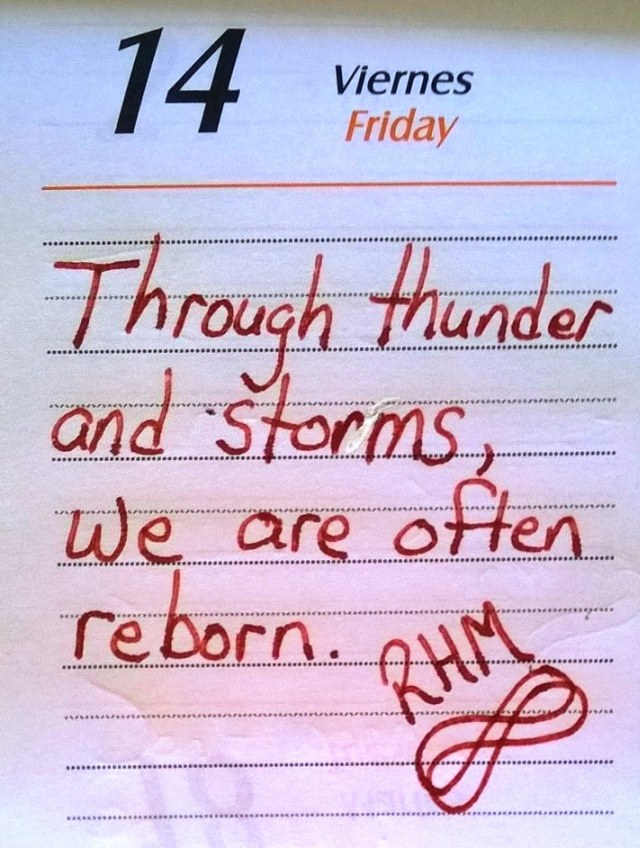 14
Viernes
Friday
Through thunder
and storms,
we are often
reborn.
RHM